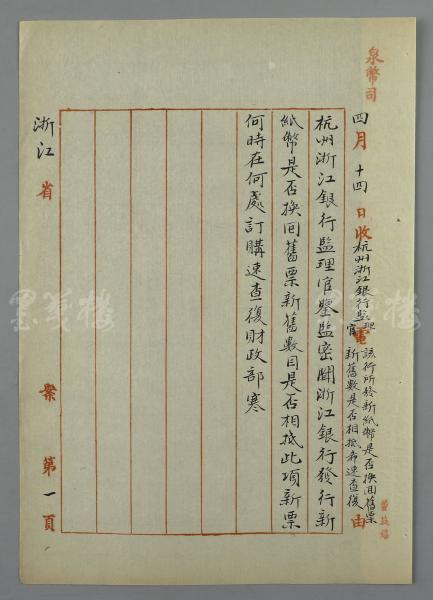 泉幣司
四月十四日收杭州浙江銀行監理官電
該行所發新紙幣是否換回舊票
新舊數是否相抵希速查復
由
杭州浙江銀行監理官鑒監密聞浙江銀行發行新
紙幣是否換回舊票新舊數目是否相抵此項新票
何時在何處訂購速查復財政部寒
浙江省
案第一頁